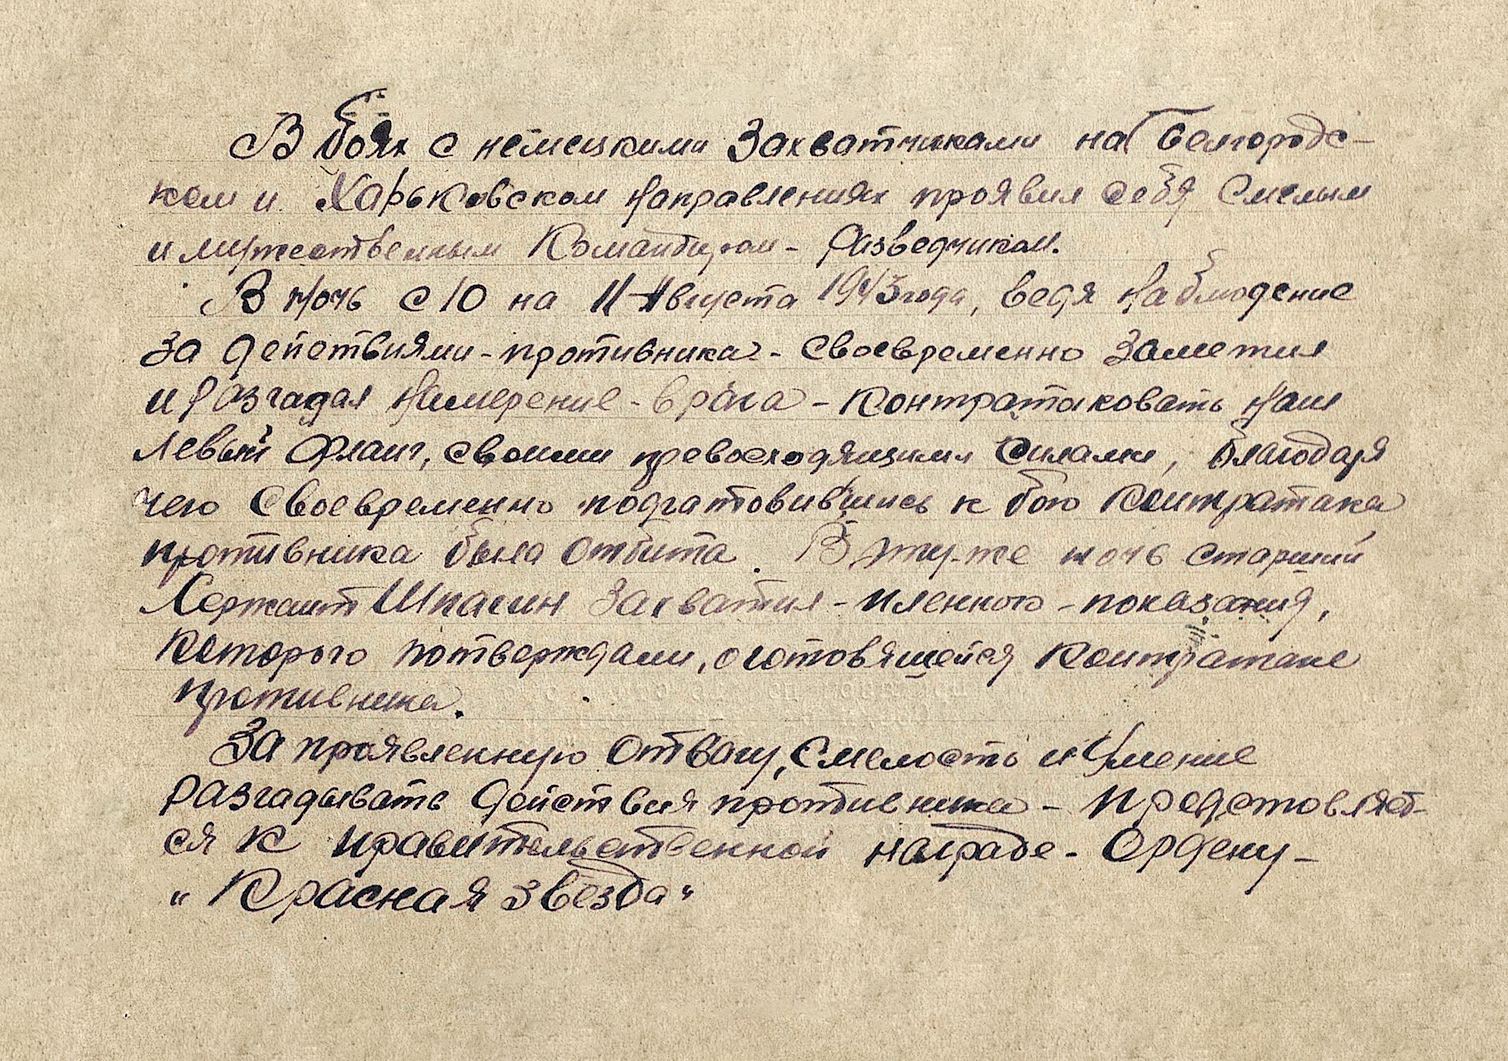 В боях с немецкими захватчиками на Белгородс-
ком и Харьковском направлениях проявил себя смелым
и мужественным Командиром - разведчиком.
В ночь с 10 на 11 Августа 1943 года, ведя наблюдение
за действиями - противника - своевременно заметил
и разгадал намерение - врага - контратаковать наш
левый фланг, своими превосходящими силами, благодаря
чего своевременно подгатовившись к бою контратака
противника была отбита. В эту-же ночь старший
Сержант Шпагин захватил - пленного - показания,
которого потверждали, о готовящейся контратаке
противника.
За проявленную отвагу, смелость и Умение
разгадывать действия противника - представляет-
ся к правительственной награде - Ордену -
"Красная звезда"